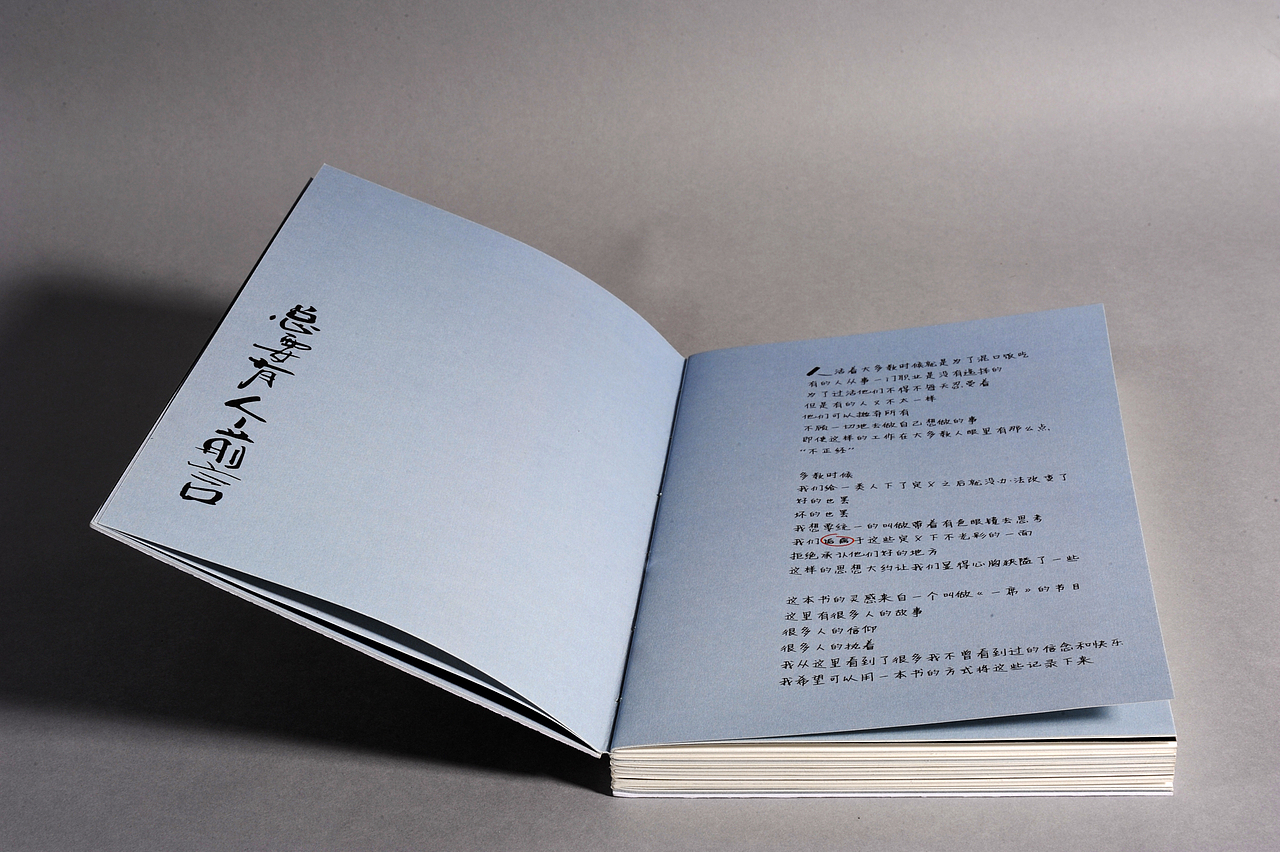 总要有人前言
人活着大多数时候就是为了混口饭吃
有的人从事一门职业是没有选择的
为了过活他们不得不每天忍受着
但是有的人又不太一样
他们可以抛弃所有
不顾一切地去做自己想做的事
即使这样的工作在大多数人眼里有那么点
“不正经”
多数时候
我们给一类人下了定义之后就没办法改变了
好的也罢
坏的也罢
我想要统一的叫做带着有色眼镜去思考
我们拘泥于这些定义下不光彩的一面
拒绝承认他们好的地方
这样的思想大约让我们显得心胸狭隘了一些
这本书的灵感来自一个叫做《一席》的节目
这里有很多人的故事
很多人的信仰
很多人的执着
我从这里看到了很多我不曾看到过的信念和快乐
我希望可以用一本书的方式将这些记录下来